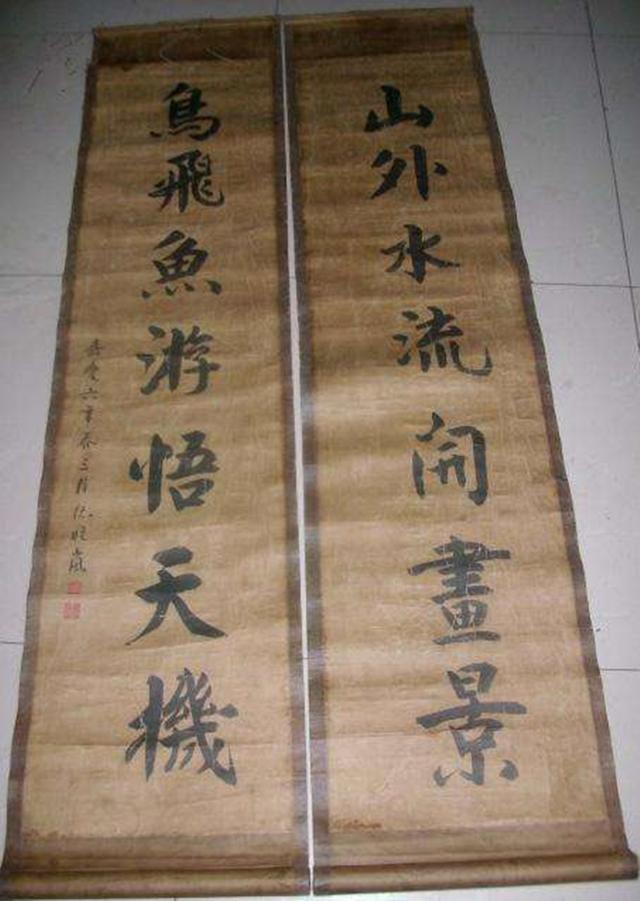 山外水流開畫景
鳥飛魚游悟天機
嘉慶六年春三月倪旺嵐